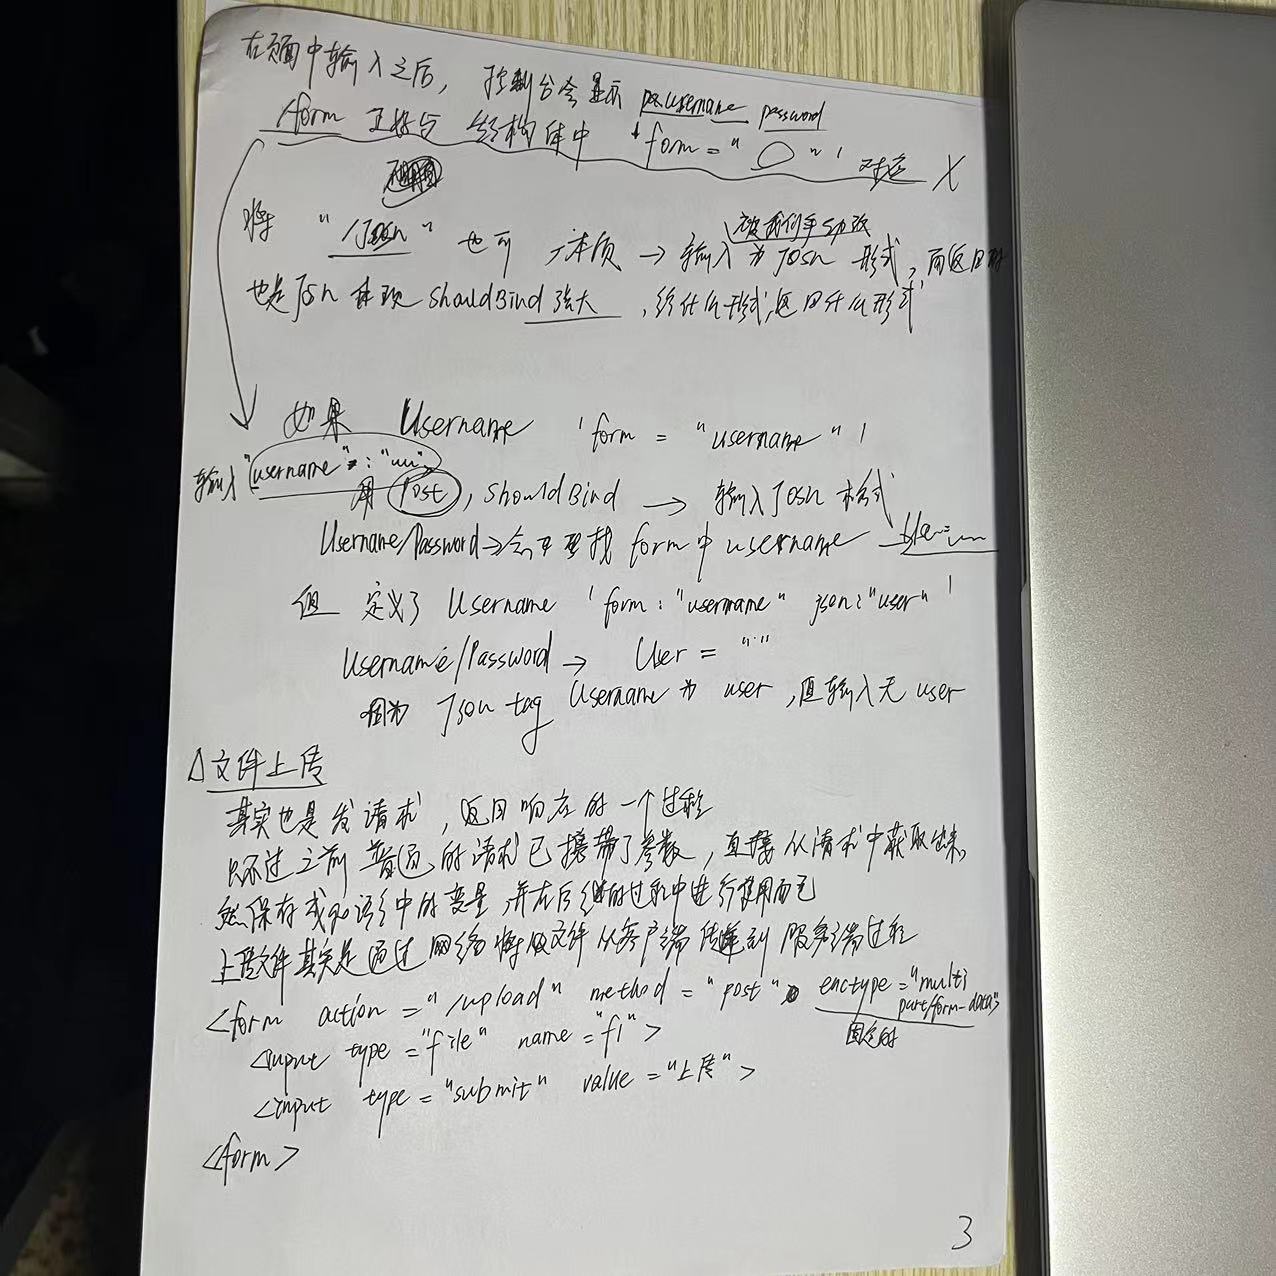 在页面中输入之后，控制台会显示 username password
/form 正好与 结构体中 form = "○" 对应 X
将 "/Josn" 也可 →本质 → 输入为Josn 形式，而返回时
被我们手动改
也是Josn 体现 ShouldBind 强大，给什么形式，返回什么形式
如果 Username 'form = "username"'
输入"username" : "uu"
用 Post, ShouldBind → 输入Josn 格式
Username/Password → 会 去 找 form中 username
但 定义了 Username 'form: "username" json: "user"'
Username/Password → User = ""
因为 Json tag Username 为 user，且输入无 user
△文件上传
其实也是发请求，返回响应的一个过程
只不过之前普通的请求已携带了参数，直接从请求中获取出来，
然保存或如语言中的变量，并在后续的过程中进行使用而已
上传文件其实是通过网络将文件从客户端传递到服务端过程
<form action = "/upload" method = "post" enctype = "multi
part/form-data">
固定的
<input type = "file" name = "f1">
<input type = "submit" value = "上传">
<form>
3